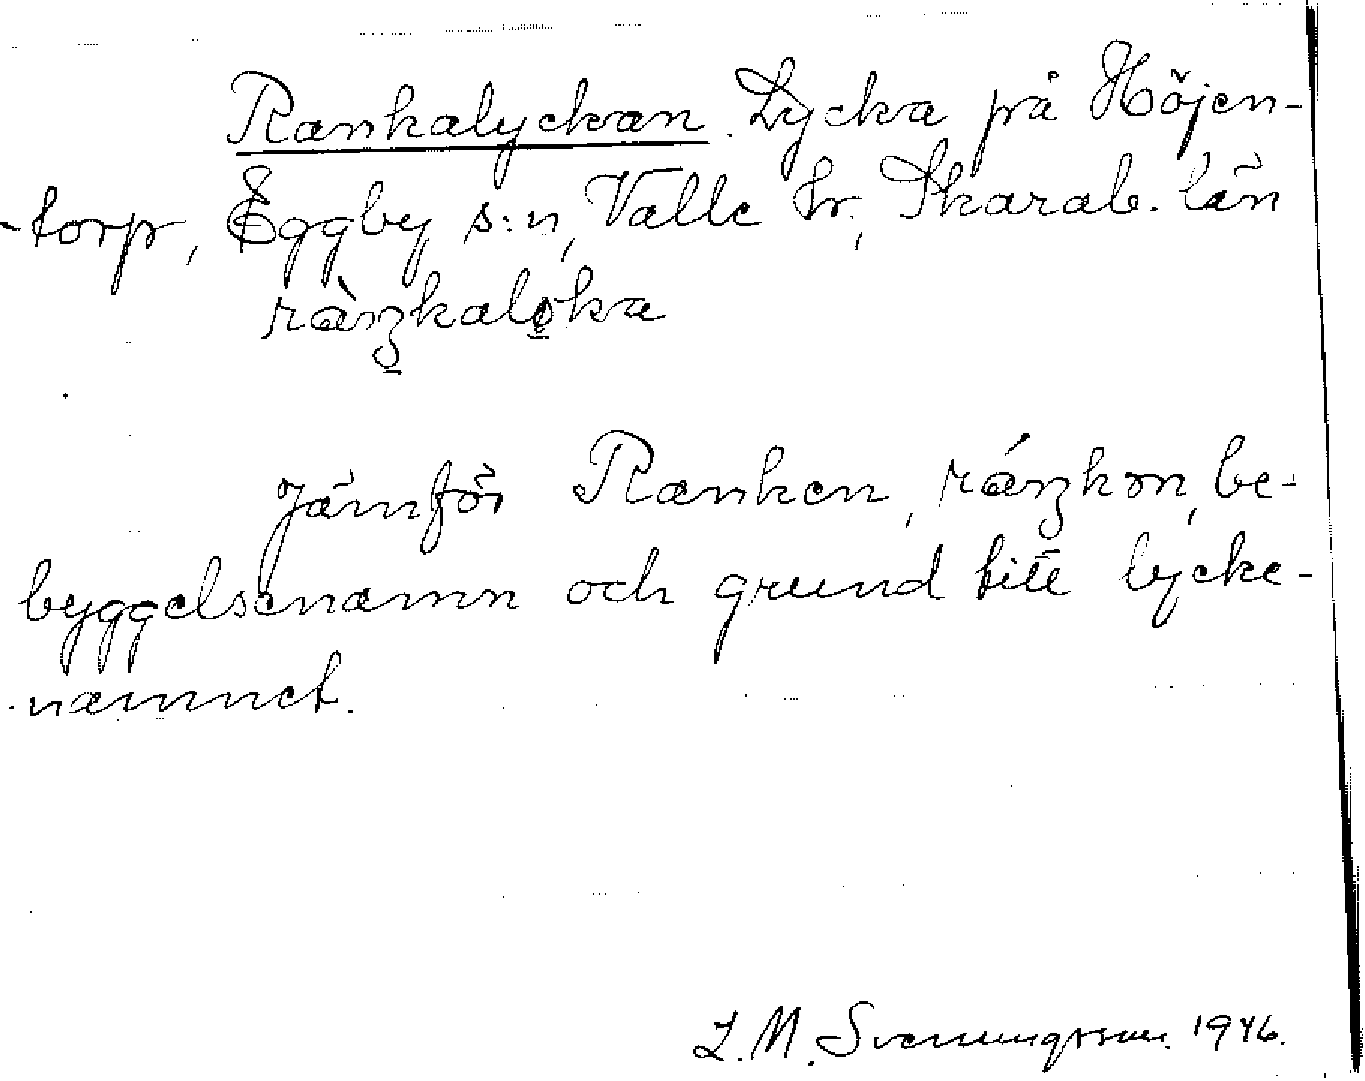 Rankalyckan. Lycka på Höjen-
-torp, Eggby s:n, Valle hr, Skarab. län
ràŋkalo̲ka
Jämför Ranken, ráŋkən, be-
byggelsenamn och grund till lycke-
-namnet.
L. M. Svenungsson. 1946.